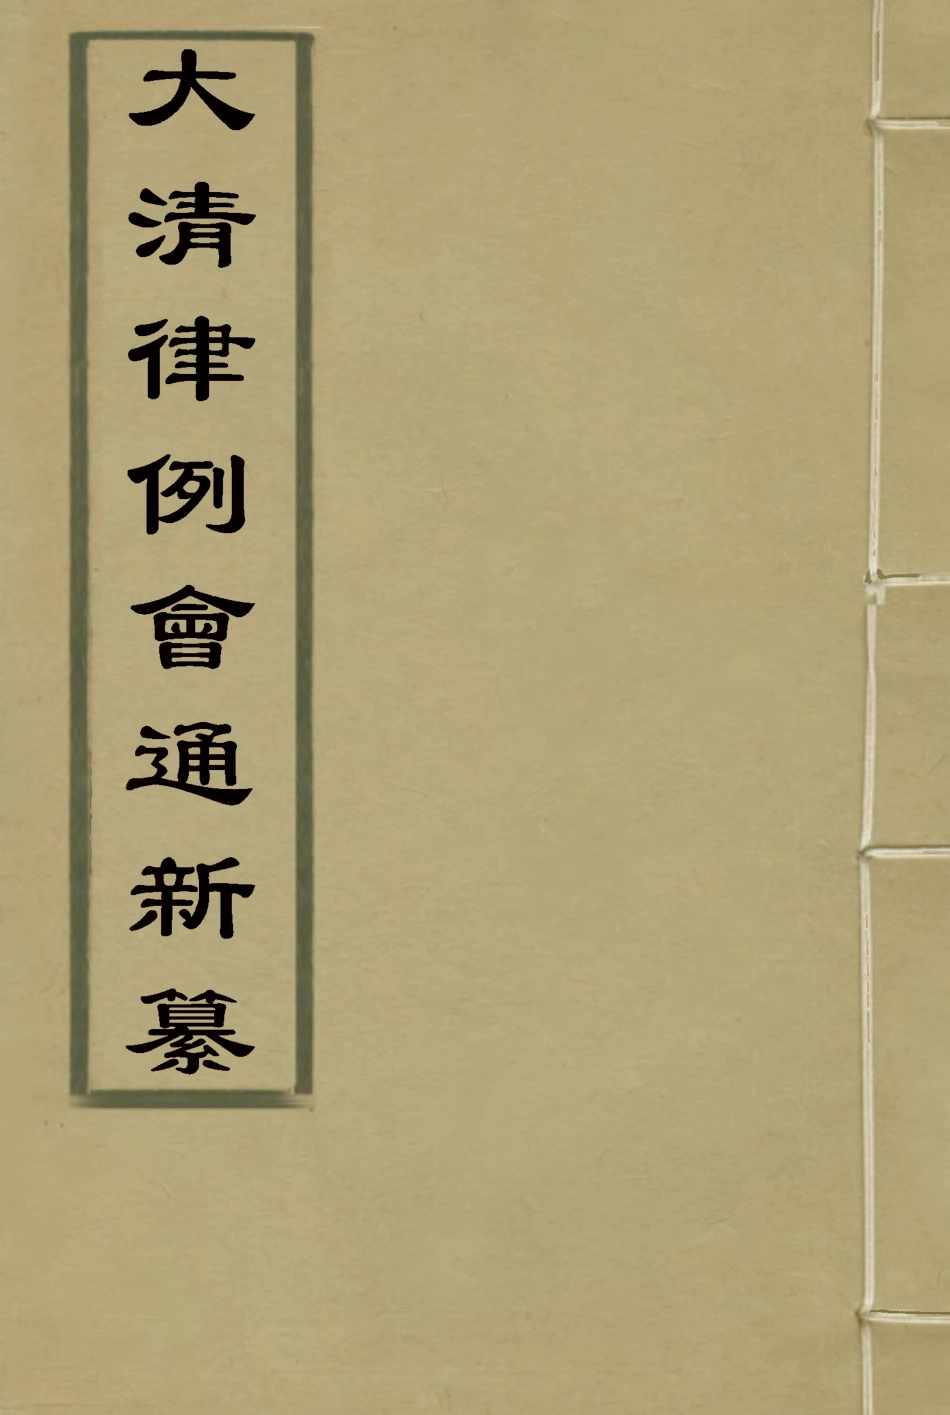 大清律例會通新纂